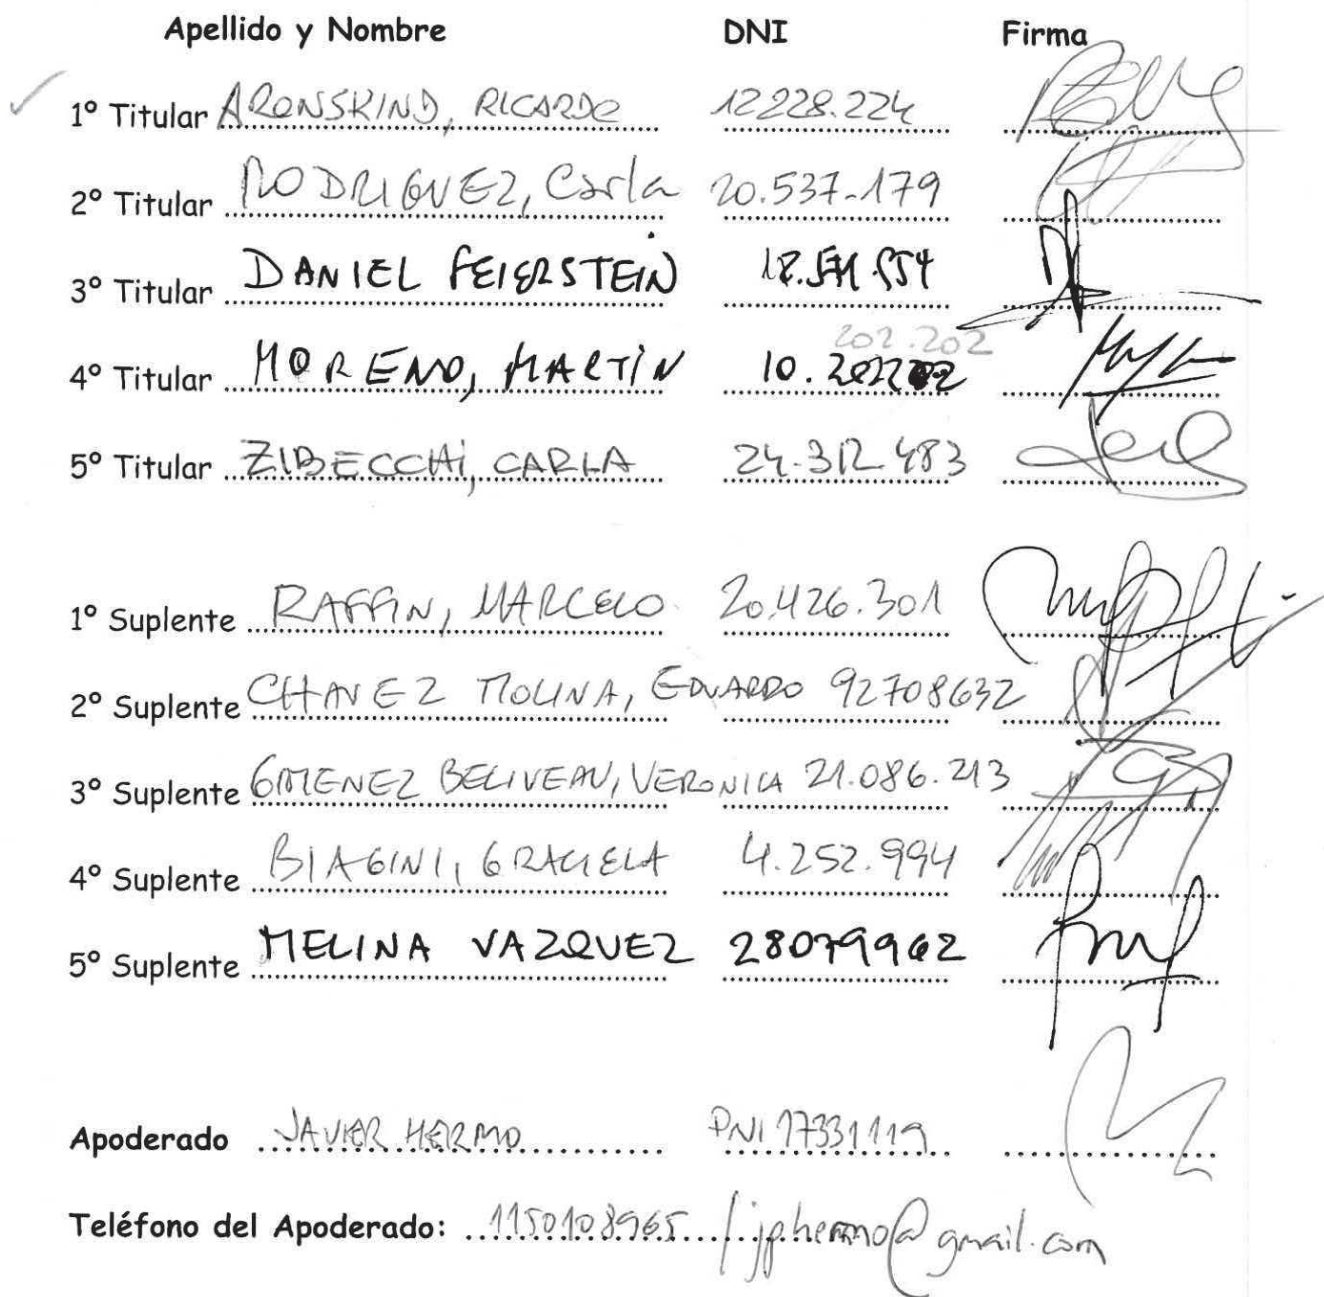 Apellido y Nombre DNI Firma
1º Titular ARONSKIND, RICARDO 12228.224
2º Titular RODRIGUEZ, Carla 20.537.179
3º Titular DANIEL FEIERSTEIN
202.202
4º Titular MORENO, MARTÍN 10.
5º Titular ZIBECCHI, CARLA 24.312.483
1º Suplente RAFFIN, MARCELO 20.426.301
2º Suplente CHAVEZ MOLINA, EDUARDO 92708632
3º Suplente GIMENEZ BELIVEAU, VERONICA 21.086.213
4º Suplente BIAGINI, GRACIELA 4.252.994
5º Suplente MELINA VAZQUEZ 28079962
Apoderado JAVIER HERMO DNI 17331119
Teléfono del Apoderado: 1150108965 / jphermo@gmail.com